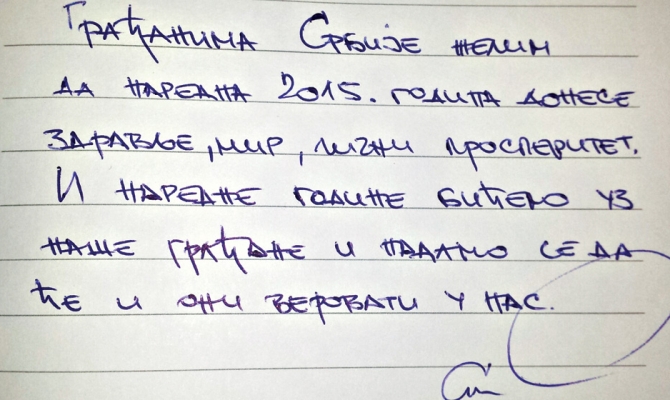 Грађанима Србије желим
да наредна 2015. година донесе
здравље, мир, лични просперитет.
И наредне године бићемо уз
наше грађане и надамо се да
ће и они веровати у нас.